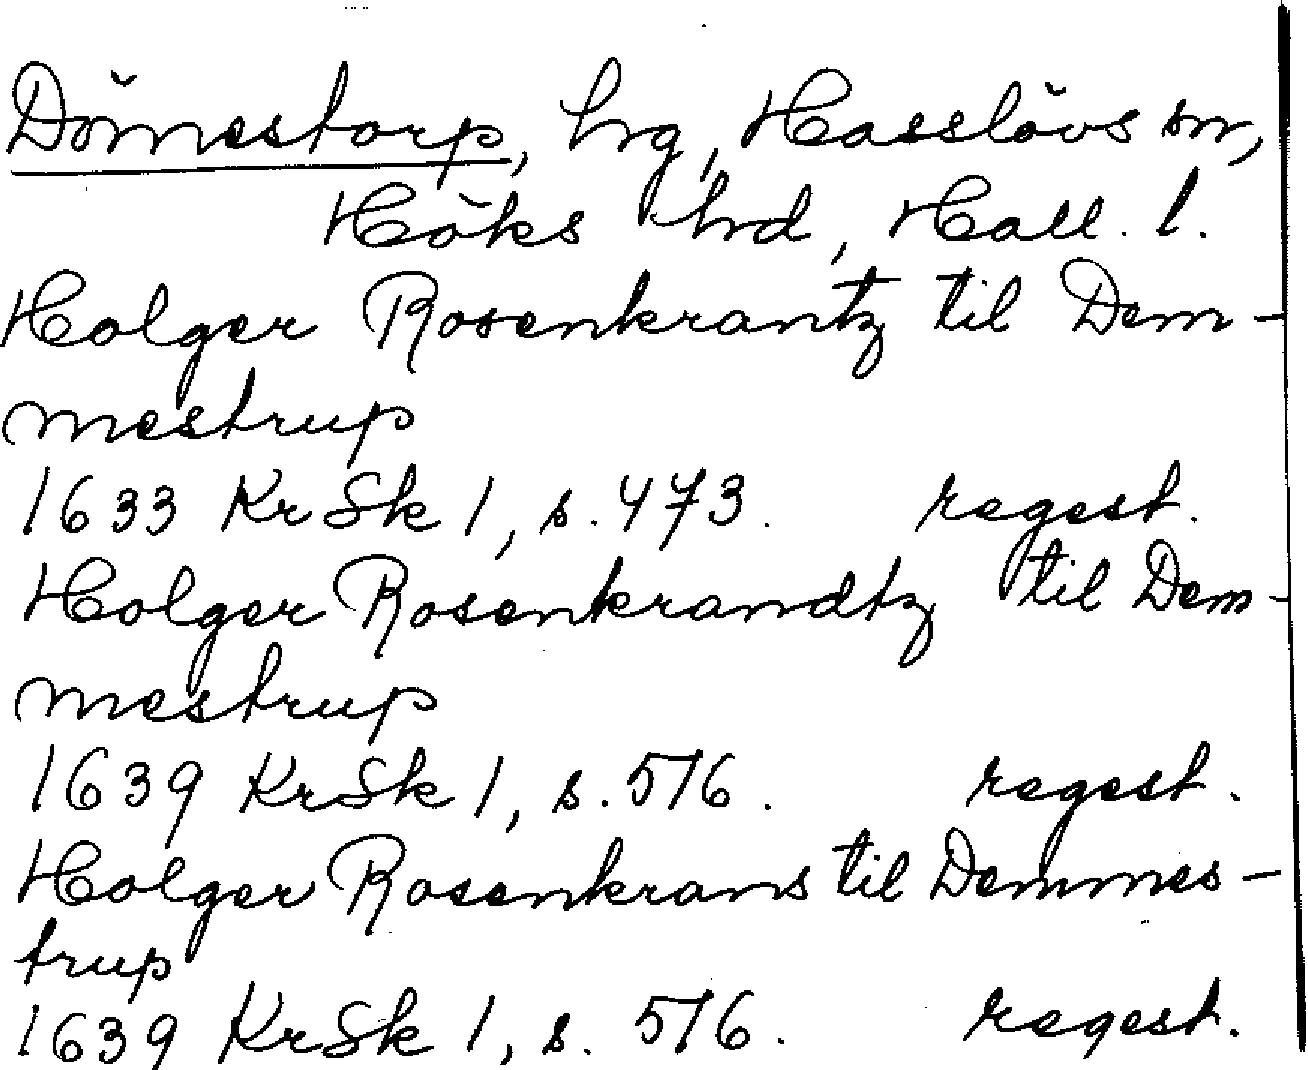 Dömestorp, hrg, Hasslövs sn,
Höks hrd, Hall. l.
Holger Rosenkrantz til Dem-
mestrup
1633 KrSk 1, s. 473. regest.
Holger Rosenkrandtz til Dem-
mestrup
1639 KrSk 1, s. 576. regest.
Holger Rosenkrans til Demmes-
trup
1639 KrSk 1, s. 576. regest.